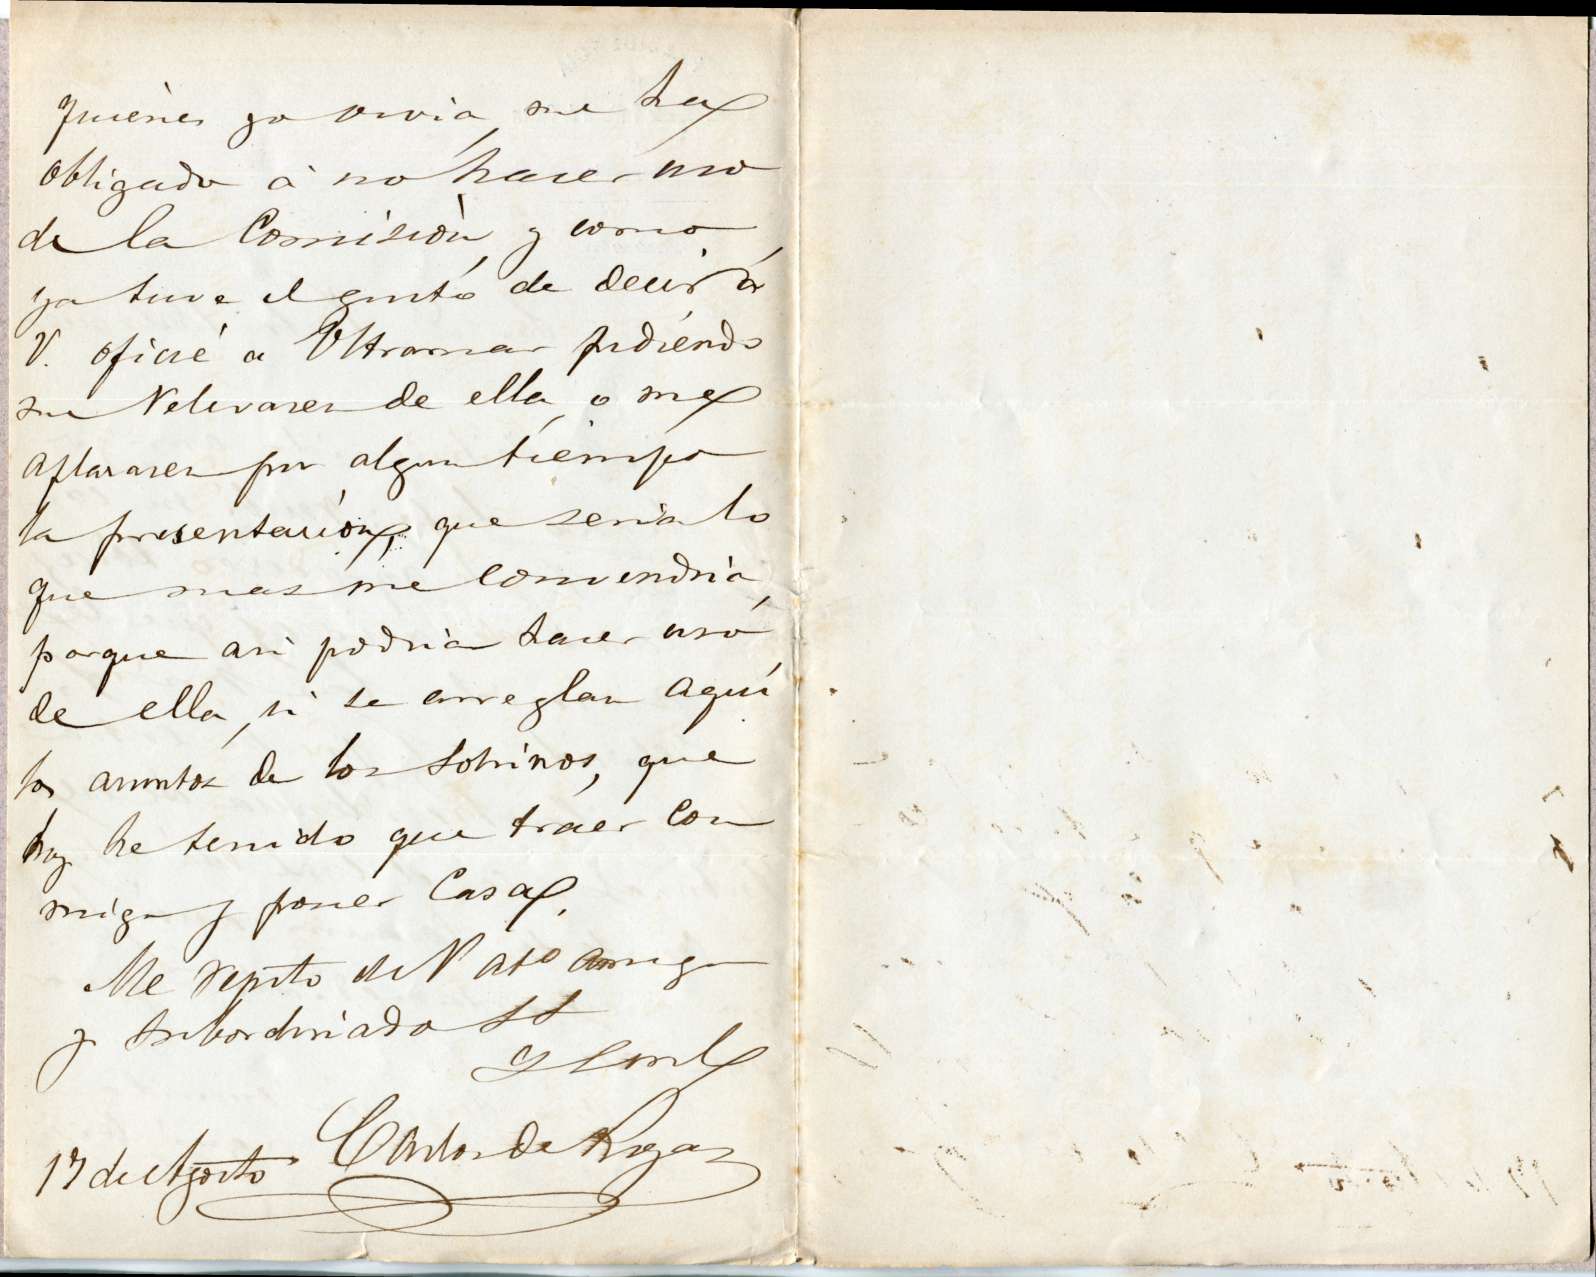 quienes yo vivia, me ha
obligado à no hacer uso
de la Comisión, y como
ya tuve el gusto de decir à
V. oficié a Ultramar pidiendo
me relevasen de ella, o me
aplazasen por algun tiempo
la presentación, que seria lo
que mas me convendria,
porque asi podria hacer uso
de ella, si se arreglan aquí
los asuntos de los sobrinos, que
hoy he tenido que traer con
migo y poner Casa.
Me repito de V. afº amigo
y subordinado SS
Carlos de Rojas
17 de Agosto